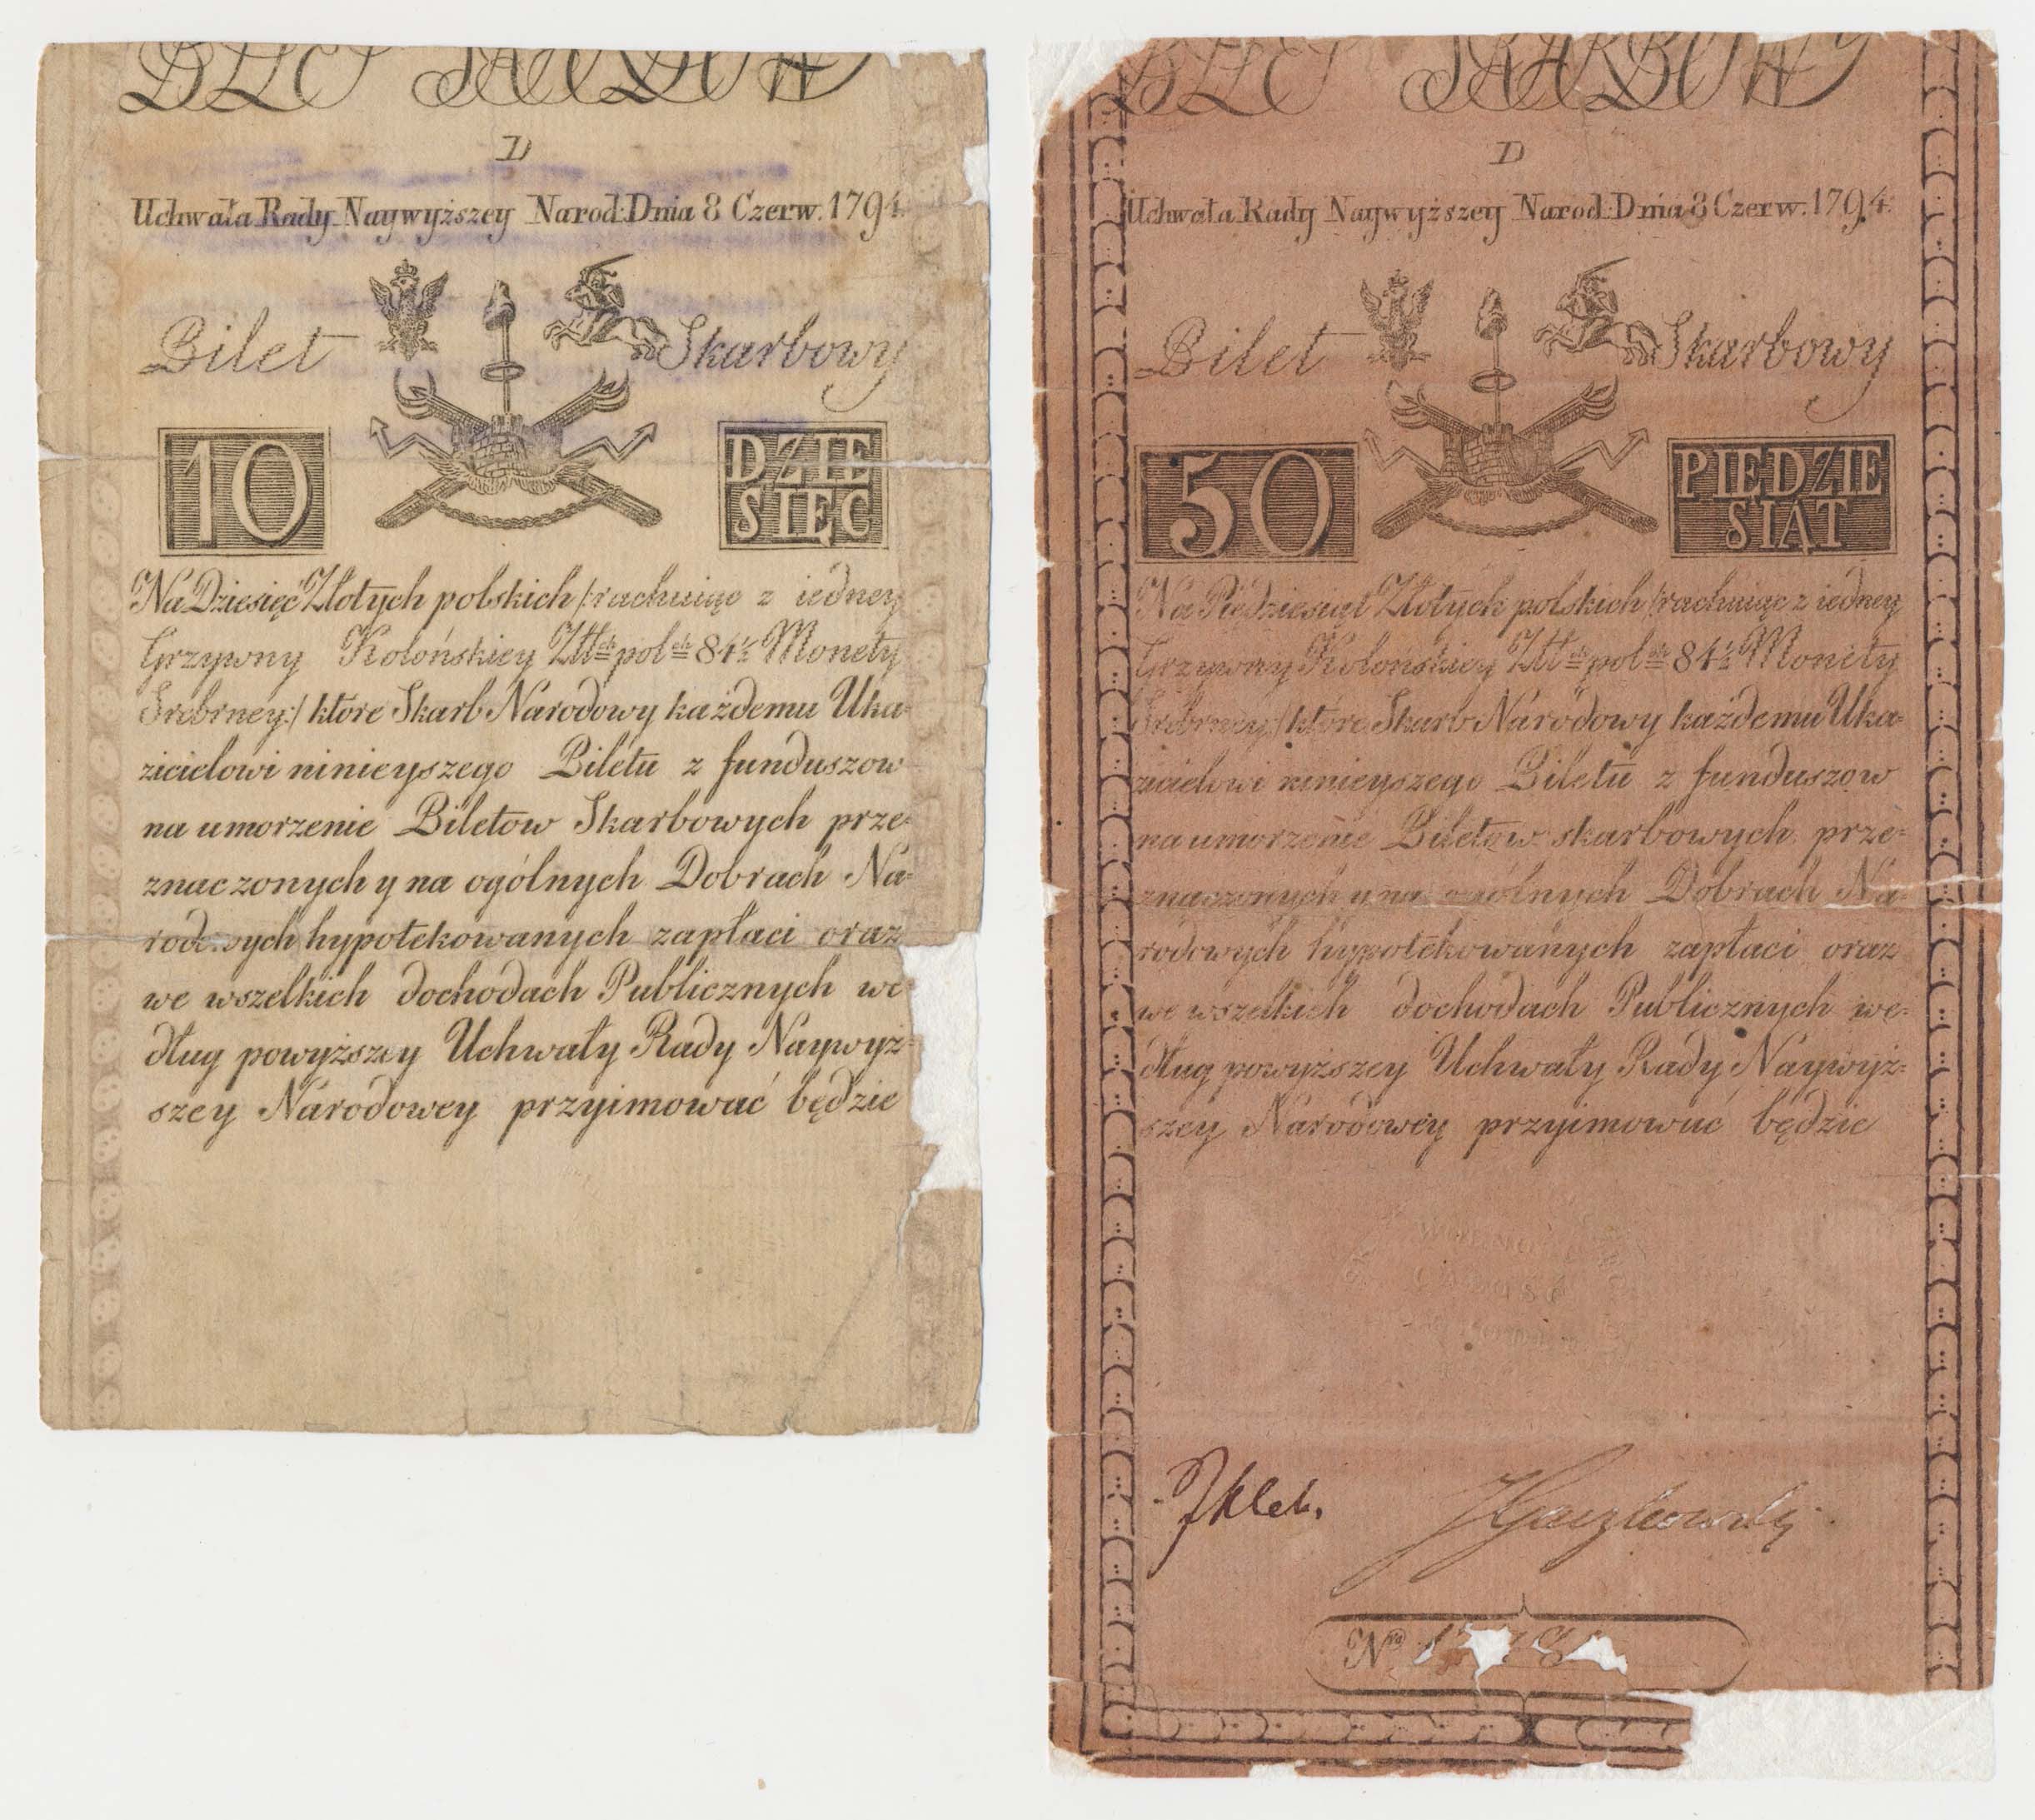 D
Uchwała Rady Naywyższey Narod: Dnia 8 Czerw. 1794.
Bilet Skarbowy
10
DZIE
SIĘC
Na Dziesięć Złotych polskich /:rachuiąc z iedney
Grzywny Kolońskiey Złł:ch pol:ch 84½ Monety
Srebrney:/ które Skarb Narodowy każdemu Uka-
zicielowi ninieyszego Biletu z funduszow
na umorzenie Biletow Skarbowych prze-
znaczonych y na ogólnych Dobrach Na-
rodowych hypotekowanych zapłaci oraz
we wszelkich dochodach Publicznych we-
dług powyższey Uchwały Rady Naywyż-
szey Narodowey przyimować będzie
D
Uchwała Rady Naywyższey Narod: Dnia 8 Czerw. 1794.
Bilet Skarbowy
50
PIEDZIE
SIĄT
Na Pięćdziesiąt Złotych polskich /:rachuiąc z iedney
Grzywny Kolońskiey Złł:ch pol:ch 84½ Monety
Srebrney:/ które Skarb Narodowy każdemu Uka-
zicielowi ninieyszego Biletu z funduszow
na umorzenie Biletow skarbowych prze-
znaczonych y na ogólnych Dobrach Na-
rodowych hypotekowanych zapłaci oraz
we wszelkich dochodach Publicznych we-
dług powyższey Uchwały Rady Naywyż-
szey Narodowey przyimować będzie
No